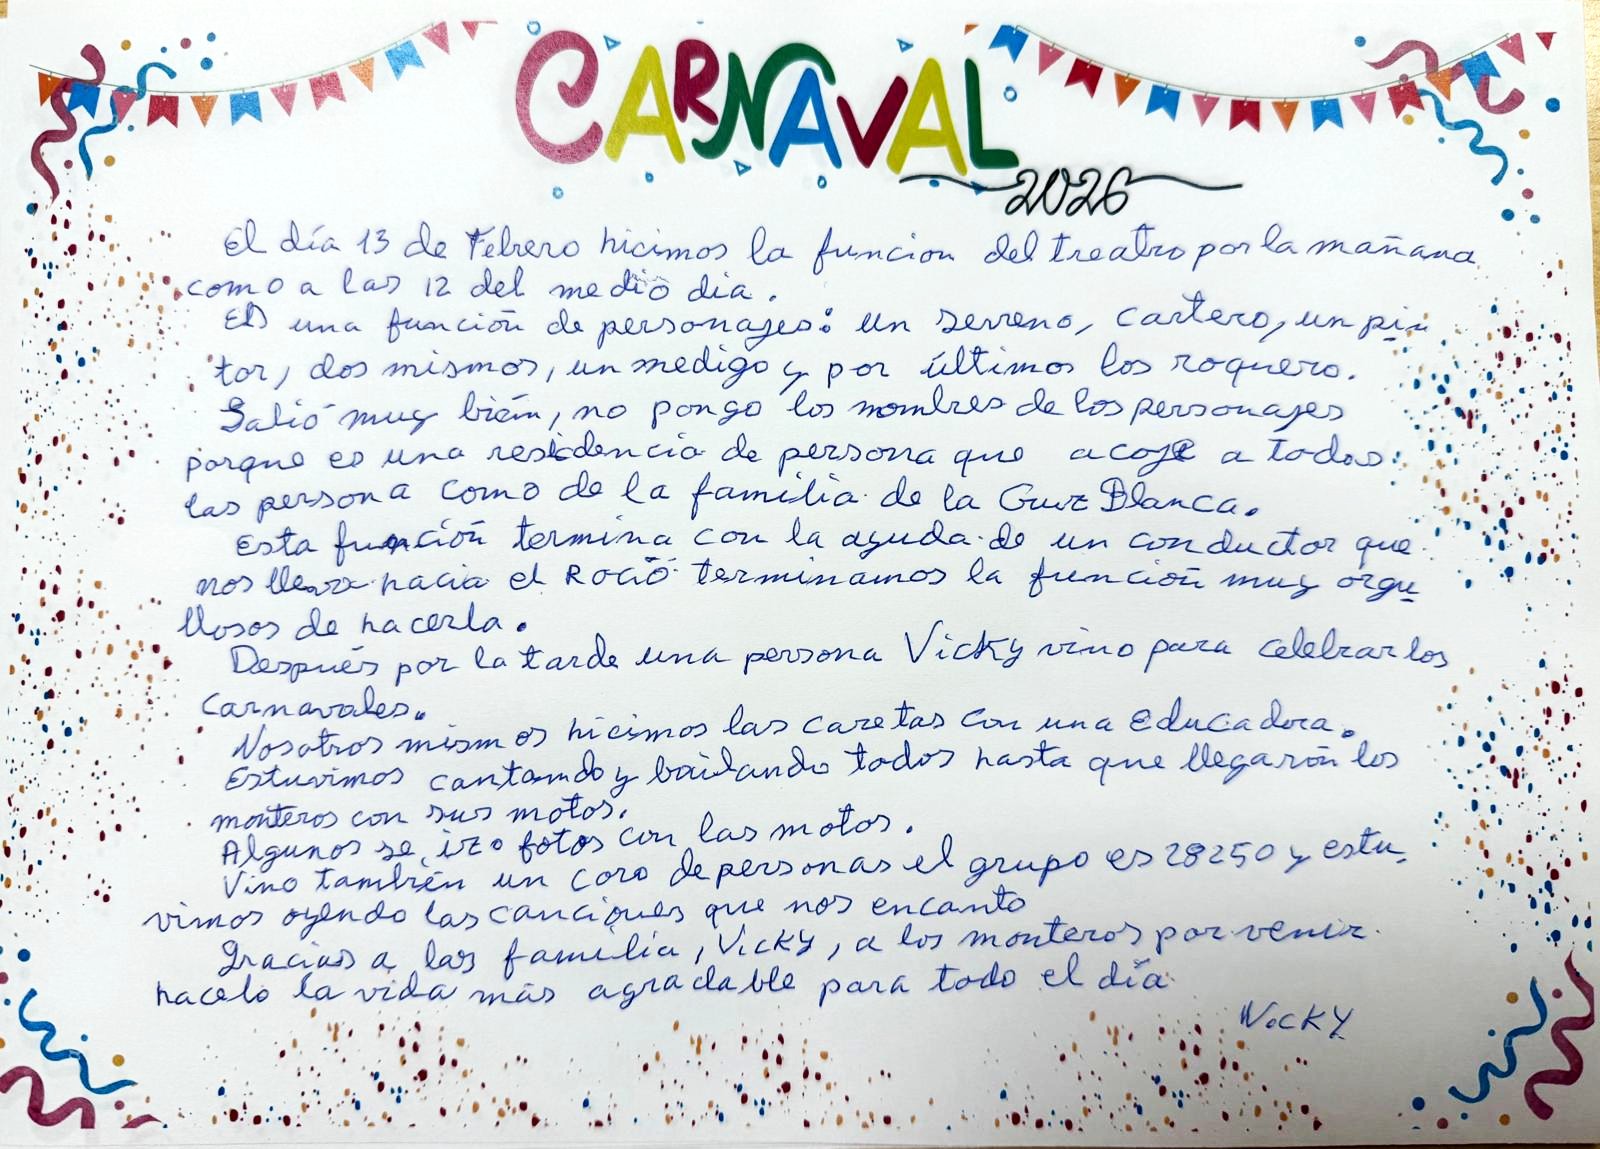 CARNAVAL
2026
El día 13 de Febrero hicimos la funcion del treatro por la mañana
como a las 12 del medio dia.
Es una función de personajes: un serreno, cartero, un pin
tor, dos mismos, un medigo y por últimos los roquero.
Salió muy bién, no pongo los nombres de los personajes
porque es una residencia de persona que acoje a todas
las persona como de la familia de la Cruz Blanca.
Esta función termina con la ayuda de un conductor que
nos lleva hacia el Roció terminamos la función muy orgu
llosos de hacerla.
Después por la tarde una persona Vicky vino para celebrar los
carnavales.
Nosotros mismos hicimos las caretas con una Educadora.
Estuvimos cantando y bailando todos hasta que llegarón los
monteros con sus motos.
Algunos se izo fotos con las motos.
Vino también un coro de personas el grupo es 28250 y estu
vimos oyendo las canciones que nos encanto
Gracias a las familia, Vicky, a los monteros por venir
hacelo la vida más agradable para todo el día
Vicky